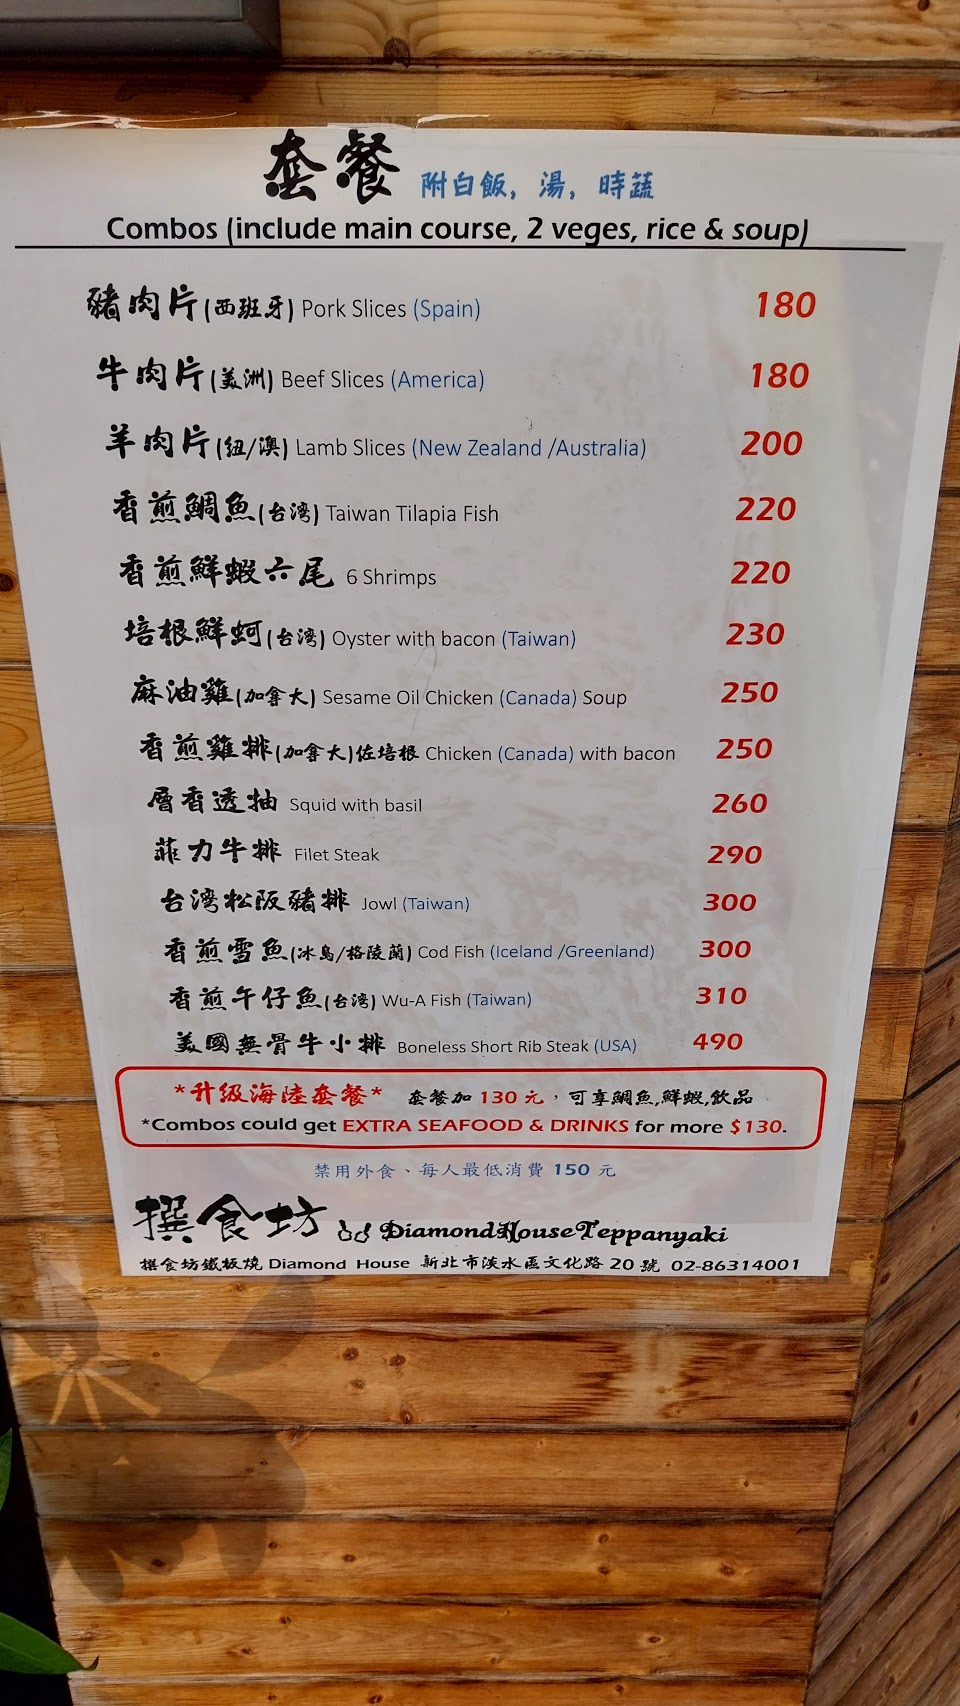 套餐 附白飯, 湯, 時蔬
Combos (include main course, 2 veges, rice & soup)
豬肉片(西班牙) Pork Slices (Spain) 180
牛肉片(美洲) Beef Slices (America) 180
羊肉片(紐/澳) Lamb Slices (New Zealand /Australia) 200
香煎鯛魚(台灣) Taiwan Tilapia Fish 220
香煎鮮蝦六尾 6 Shrimps 220
培根鮮蚵(台灣) Oyster with bacon (Taiwan) 230
麻油雞(加拿大) Sesame Oil Chicken (Canada) Soup 250
香煎雞排(加拿大)佐培根 Chicken (Canada) with bacon 250
層香透抽 Squid with basil 260
菲力牛排 Filet Steak 290
台灣松阪豬排 Jowl (Taiwan) 300
香煎雪魚(冰島/格陵蘭) Cod Fish (Iceland /Greenland) 300
香煎午仔魚(台灣) Wu-A Fish (Taiwan) 310
美國無骨牛小排 Boneless Short Rib Steak (USA) 490
*升級海陸套餐* 套餐加 130 元，可享鯛魚,鮮蝦,飲品
*Combos could get EXTRA SEAFOOD & DRINKS for more $130.
禁用外食、每人最低消費 150 元
撰食坊 DiamondHouseTeppanyaki
撰食坊鐵板燒 Diamond House 新北市淡水區文化路 20 號 02-86314001